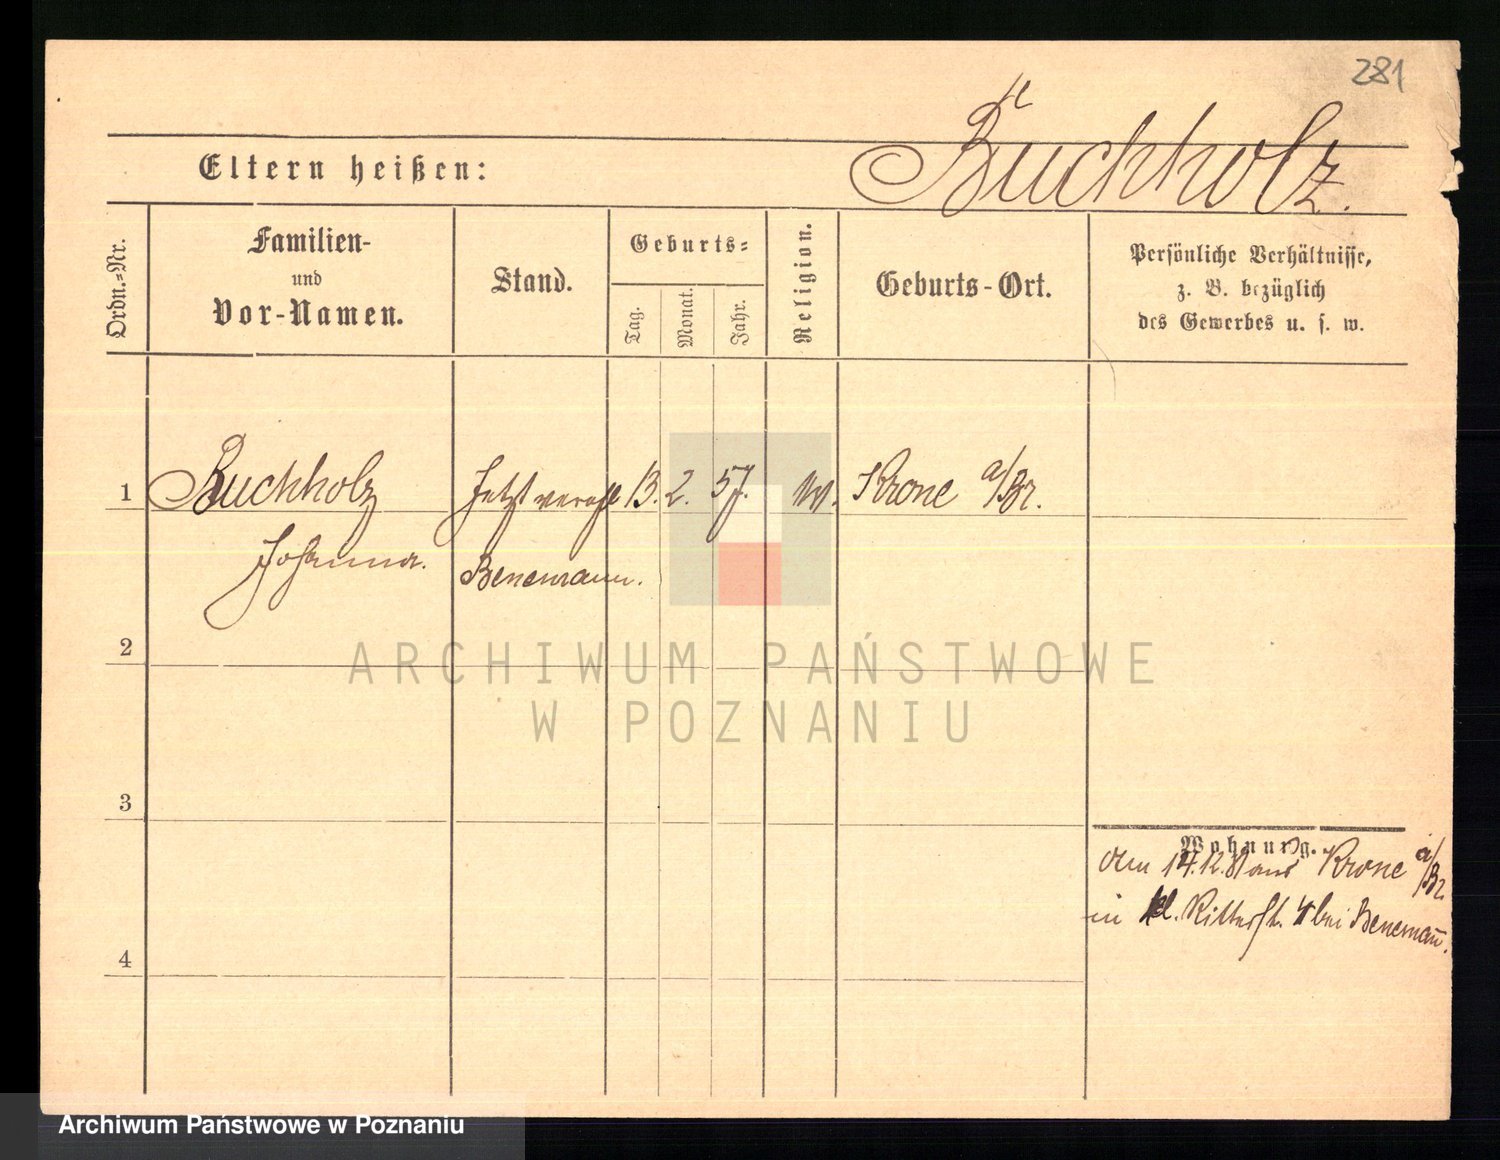 281
Buchholz.
Eltern heißen:
Ordn.-Nr.
Familien-
und
Vor-Namen.
Stand.
Geburts-
Tag.
Monat.
Jahr.
Religion.
Geburts-Ort.
Persönliche Verhältnisse,
z. B. bezüglich
des Gewerbes u. s. w.
1 Buchholz Jetzt verehl 13. 2. 57. Krone a/Br.
Johanna. Benemann.
2
ARCHIWUM PAŃSTWOWE
W POZNANIU
3
Wohnung.
Am 14.12.81 aus Krone a/Br.
in kl. Ritterst. 4 bei Benemañ.
4
Archiwum Państwowe w Poznaniu